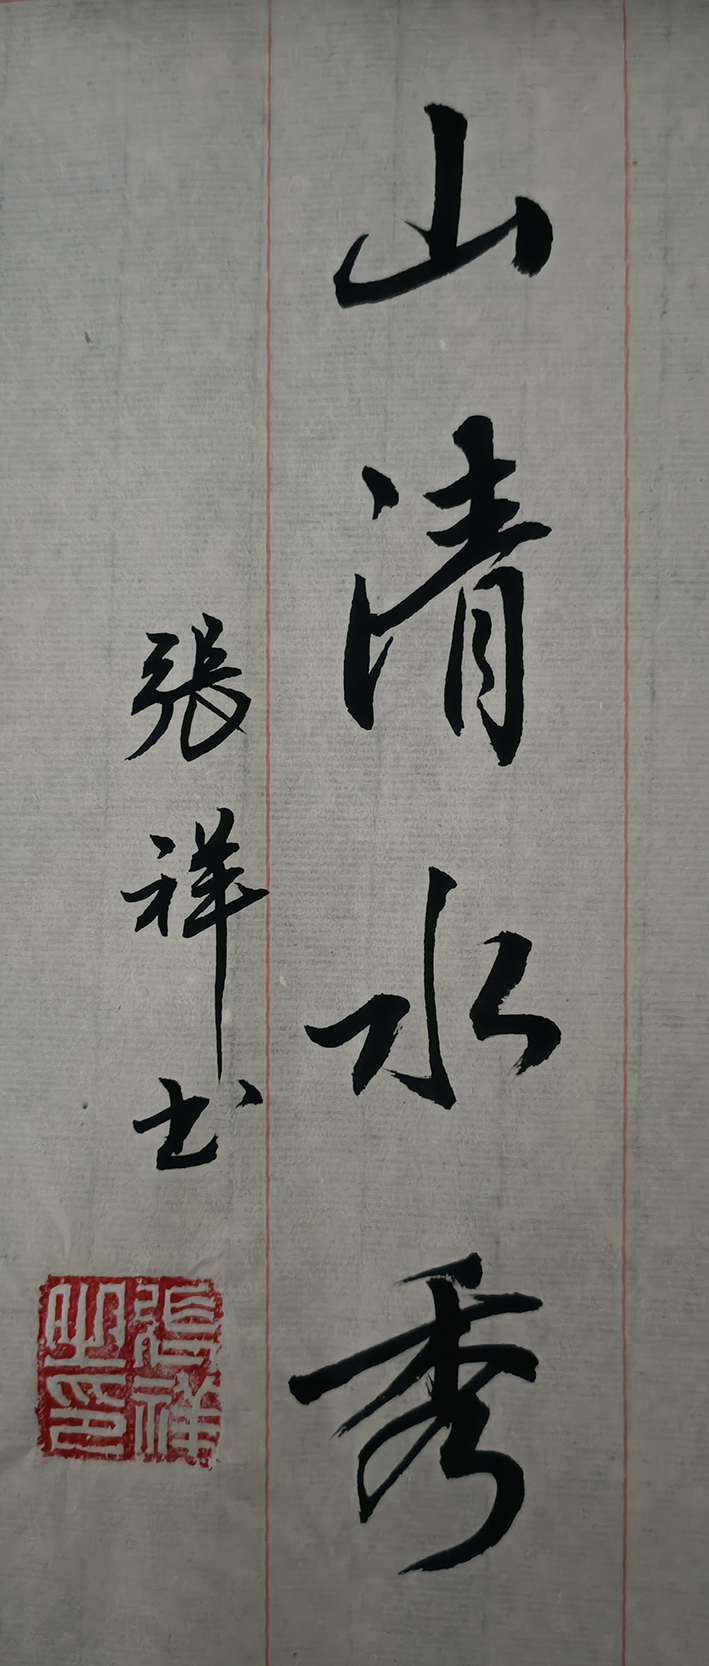 山清水秀
張祥书
張祥之印